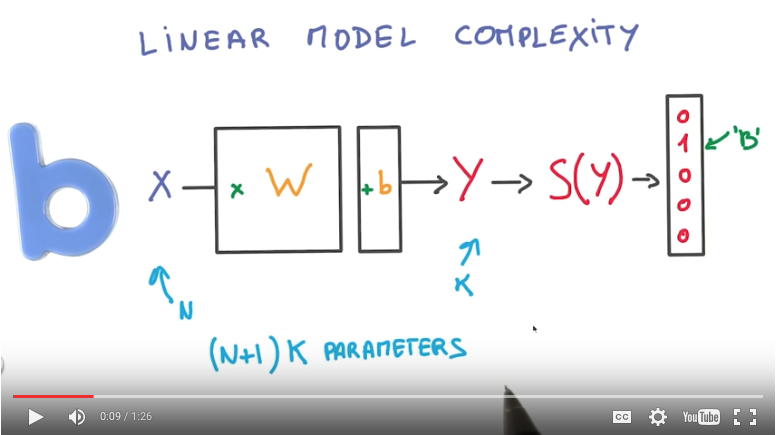 LINEAR MODEL COMPLEXITY
b X x W + b Y S(Y) 0 1 0 0 0 'B'
N K
(N+1) K PARAMETERS
0:09 / 1:26 CC YouTube